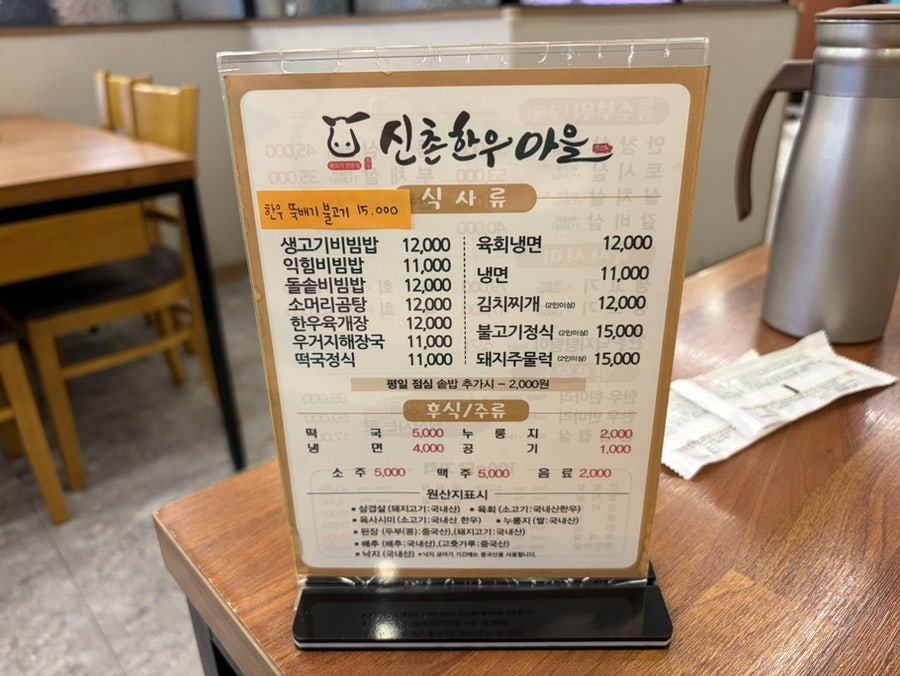 신촌한우마을
생고기 전문점
식사류
한우 뚝배기 불고기 15.000
생고기비빔밥 12,000
익힘비빔밥 11,000
돌솥비빔밥 12,000
소머리곰탕 12,000
한우육개장 12,000
우거지해장국 11,000
떡국정식 11,000
육회냉면 12,000
냉면 11,000
김치찌개 (2인이상) 12,000
불고기정식 (2인이상) 15,000
돼지주물럭 (2인이상) 15,000
평일 점심 솥밥 추가시 - 2,000원
후식/주류
떡국 5,000 누룽지 2,000
냉면 4,000 공기 1,000
소주 5,000 맥주 5,000 음료 2,000
원산지표시
▪ 삼겹살 (돼지고기:국내산) ▪ 육회 (소고기:국내산한우)
▪ 육사시미 (소고기:국내산 한우) ▪ 누룽지 (쌀:국내산)
▪ 된장 (두부(콩):중국산),(돼지고기:국내산)
▪ 배추 (배추:국내산),(고춧가루:중국산)
▪ 낙지 (국내산) ※낙지 금어기 기간에는 중국산을 사용합니다.